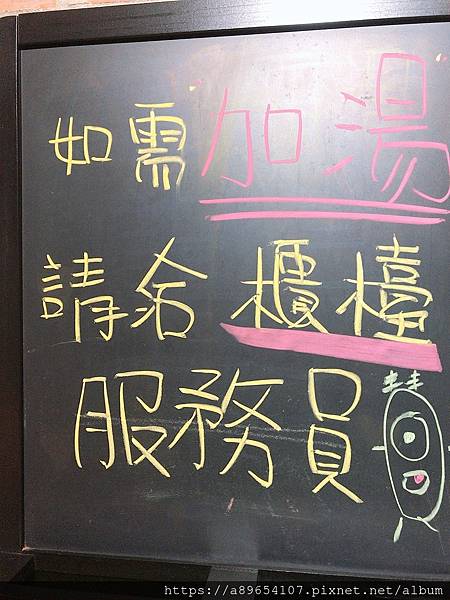 如需加湯
請給櫃檯
服務員
https://a89654107.pixnet.net/album